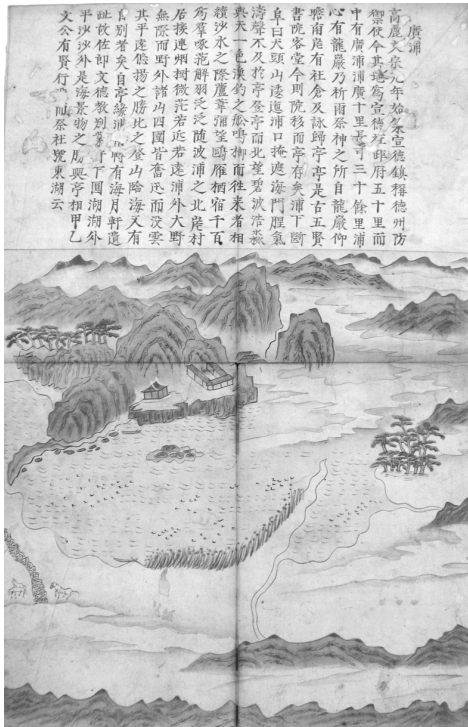 廣浦
高麗文宗元年始築宣德鎮稱德州防
禦使今其地為宣德社距府五十里而
中有廣浦浦廣十里長可三十餘里浦
心有龍巖乃祈雨祭神之所自龍巖仰
瞻南岸有社倉及詠歸亭亭是古五賢
書院客堂今則院移而亭存矣浦下斷
阜曰犬頭山逶迤浦口掩遮海門腥氣
濤聲不及於亭登亭而北望碧波浩淼
與天一色漁釣之舩鳴榔而往來者相
續沙水之際蘆葦彌望鷗雁栖宿千百
為羣啄菢解羽泛泛随波浦之北岸村
居接連烟樹微茫若近若遠浦外大野
無際而野外諸山四圍皆奮迅而沒雲
其平遠悠揚之勝比之登山臨海又有
自別者矣自亭緣浦 有海月軒遺
址故佐郎文德教別業 下圓湖湖外
平沙沙外是海景物之勝與亭相甲乙
文公有賢行 祭社號東湖云